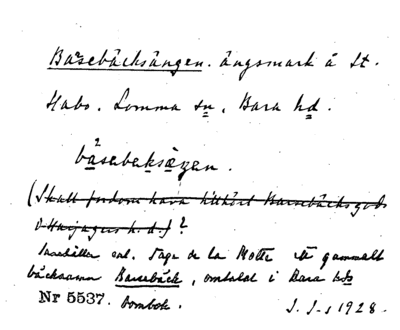 Barsebäcksängen. ängsmark å St.
Habo. Lomma sn, Bara hd.
básebeksäŋen.
(Skall fordom hava tillhört Barsebäcksgods
i Harjagers h.d.)?
Innehåller enl. Tage de la Motte ett gammalt
bäcknamn Barsebäck, omtalat i Bara hds
Nr 5537. dombok. J. J-s 1928.